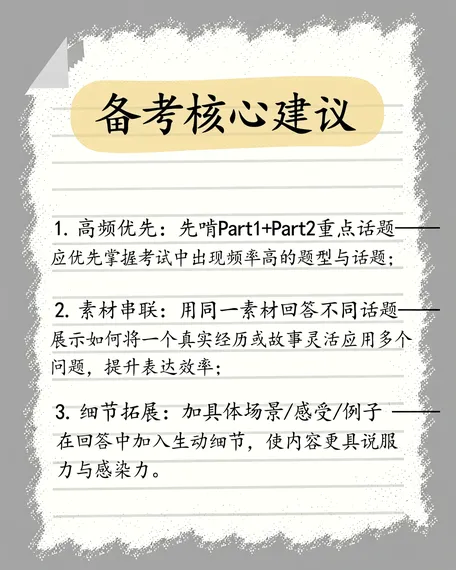 备考核心建议
1. 高频优先：先啃Part1+Part2重点话题
应优先掌握考试中出现频率高的题型与话题；
2. 素材串联：用同一素材回答不同话题
展示如何将一个真实经历或故事灵活应用多个
问题，提升表达效率；
3. 细节拓展：加具体场景/感受/例子
在回答中加入生动细节，使内容更具说服
力与感染力。